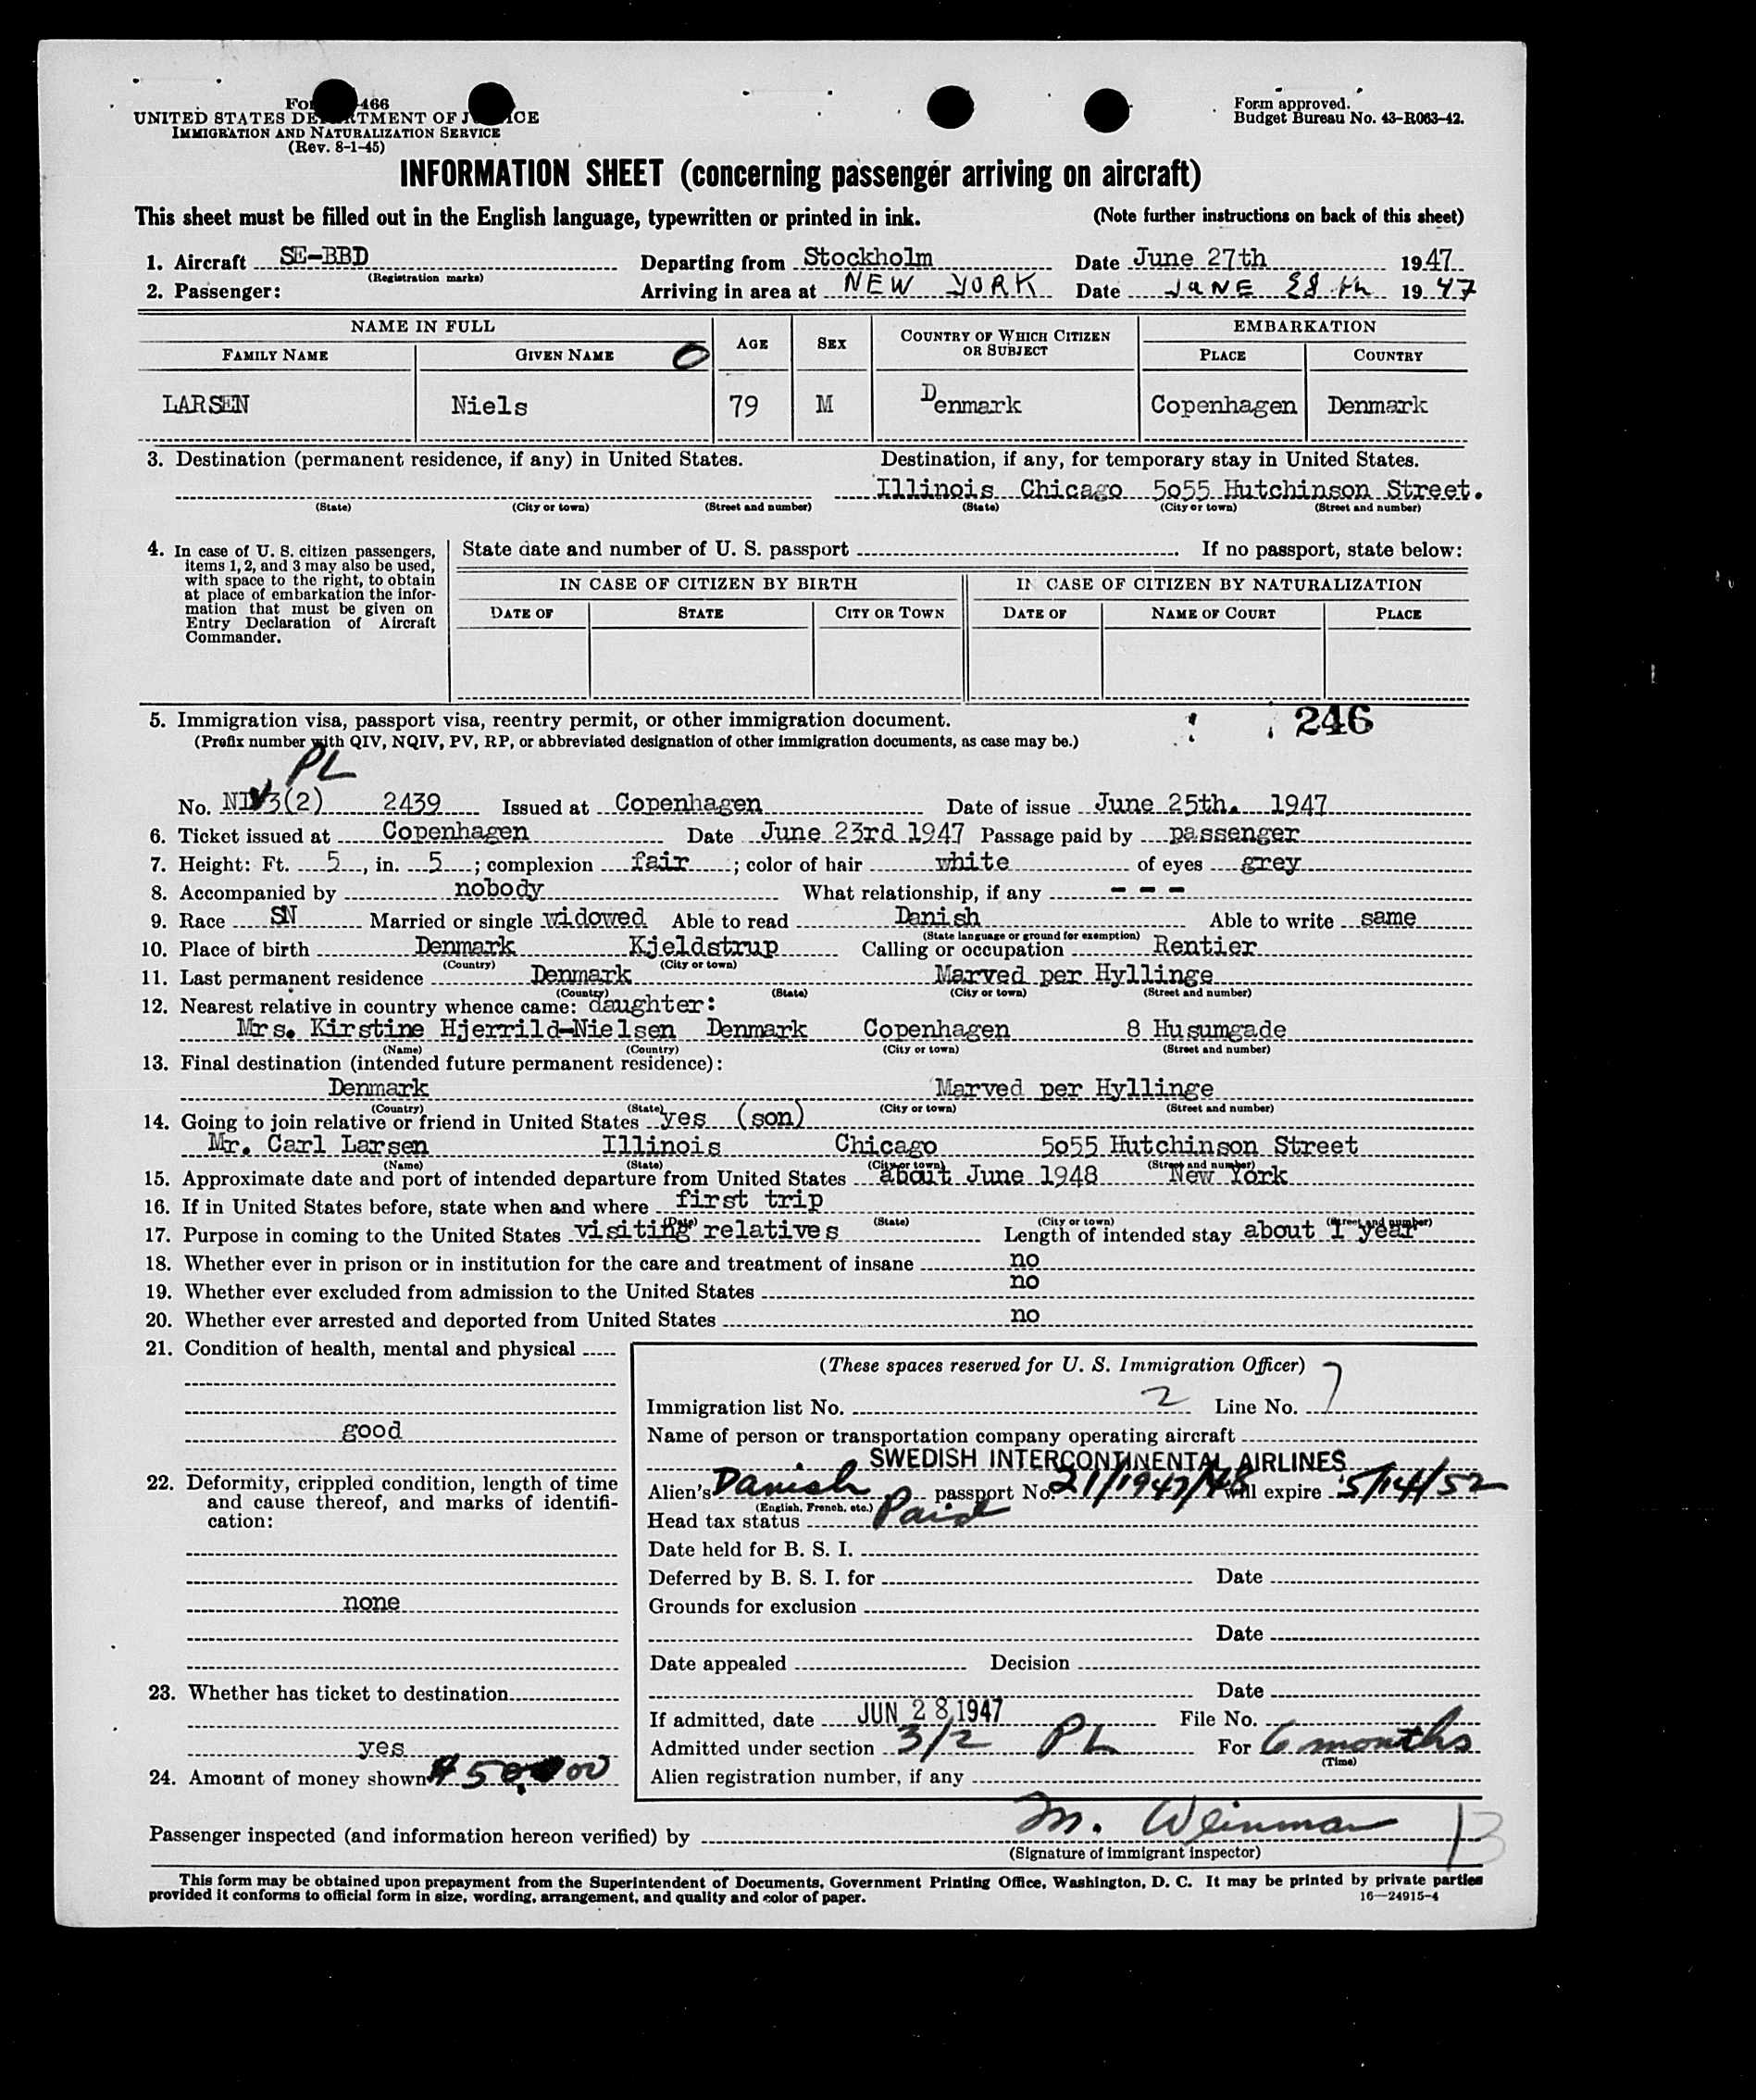 Form 466
UNITED STATES DEPARTMENT OF JUSTICE
IMMIGRATION AND NATURALIZATION SERVICE
(Rev. 8-1-45)
Form approved.
Budget Bureau No. 43-R063-42.
INFORMATION SHEET (concerning passenger arriving on aircraft)
This sheet must be filled out in the English language, typewritten or printed in ink. (Note further instructions on back of this sheet)
1. Aircraft SE-BBD Departing from Stockholm Date June 27th 1947
(Registration marks)
2. Passenger: Arriving in area at NEW YORK Date JUNE 28th 1947
NAME IN FULL AGE SEX COUNTRY OF WHICH CITIZEN OR SUBJECT EMBARKATION
FAMILY NAME GIVEN NAME PLACE COUNTRY
LARSEN Niels 79 M Denmark Copenhagen Denmark
3. Destination (permanent residence, if any) in United States. Destination, if any, for temporary stay in United States.
Illinois Chicago 5055 Hutchinson Street.
(State) (City or town) (Street and number) (State) (City or town) (Street and number)
4. In case of U. S. citizen passengers, items 1, 2, and 3 may also be used, with space to the right, to obtain at place of embarkation the information that must be given on Entry Declaration of Aircraft Commander.
State date and number of U. S. passport If no passport, state below:
IN CASE OF CITIZEN BY BIRTH IN CASE OF CITIZEN BY NATURALIZATION
DATE OF STATE CITY OR TOWN DATE OF NAME OF COURT PLACE
5. Immigration visa, passport visa, reentry permit, or other immigration document. 246
(Prefix number with QIV, NQIV, PV, RP, or abbreviated designation of other immigration documents, as case may be.)
PL
No. NIV3(2) 2439 Issued at Copenhagen Date of issue June 25th. 1947
6. Ticket issued at Copenhagen Date June 23rd 1947 Passage paid by passenger
7. Height: Ft. 5, in. 5; complexion fair; color of hair white of eyes grey
8. Accompanied by nobody What relationship, if any - - -
9. Race SN Married or single widowed Able to read Danish Able to write same
(State language or ground for exemption)
10. Place of birth Denmark Kjeldstrup Calling or occupation Rentier
(Country) (City or town)
11. Last permanent residence Denmark Marved per Hyllinge
(Country) (State) (City or town) (Street and number)
12. Nearest relative in country whence came: daughter:
Mrs. Kirstine Hjerrild-Nielsen Denmark Copenhagen 8 Husumgade
(Name) (Country) (City or town) (Street and number)
13. Final destination (intended future permanent residence):
Denmark Marved per Hyllinge
(Country) (State) (City or town) (Street and number)
14. Going to join relative or friend in United States yes (son)
Mr. Carl Larsen Illinois Chicago 5055 Hutchinson Street
(Name) (State) (City or town) (Street and number)
15. Approximate date and port of intended departure from United States about June 1948 New York
16. If in United States before, state when and where first trip
(Date) (State) (City or town) (Street and number)
17. Purpose in coming to the United States visiting relatives Length of intended stay about 1 year
18. Whether ever in prison or in institution for the care and treatment of insane no
19. Whether ever excluded from admission to the United States no
20. Whether ever arrested and deported from United States no
21. Condition of health, mental and physical
good
22. Deformity, crippled condition, length of time and cause thereof, and marks of identification:
none
23. Whether has ticket to destination
yes
24. Amount of money shown $50.00
(These spaces reserved for U. S. Immigration Officer)
Immigration list No. 2 Line No. 7
Name of person or transportation company operating aircraft
SWEDISH INTERCONTINENTAL AIRLINES
Alien's Danish passport No. 21/1947/48 will expire 5/14/52
(English, French, etc.)
Head tax status Paid
Date held for B. S. I.
Deferred by B. S. I. for Date
Grounds for exclusion
Date
Date appealed Decision
Date
If admitted, date JUN 28 1947 File No.
Admitted under section 3/2 PL For 6 months
(Time)
Alien registration number, if any
Passenger inspected (and information hereon verified) by M. Weinman 13
(Signature of immigrant inspector)
This form may be obtained upon prepayment from the Superintendent of Documents, Government Printing Office, Washington, D. C. It may be printed by private parties
provided it conforms to official form in size, wording, arrangement, and quality and color of paper. 16—24915-4